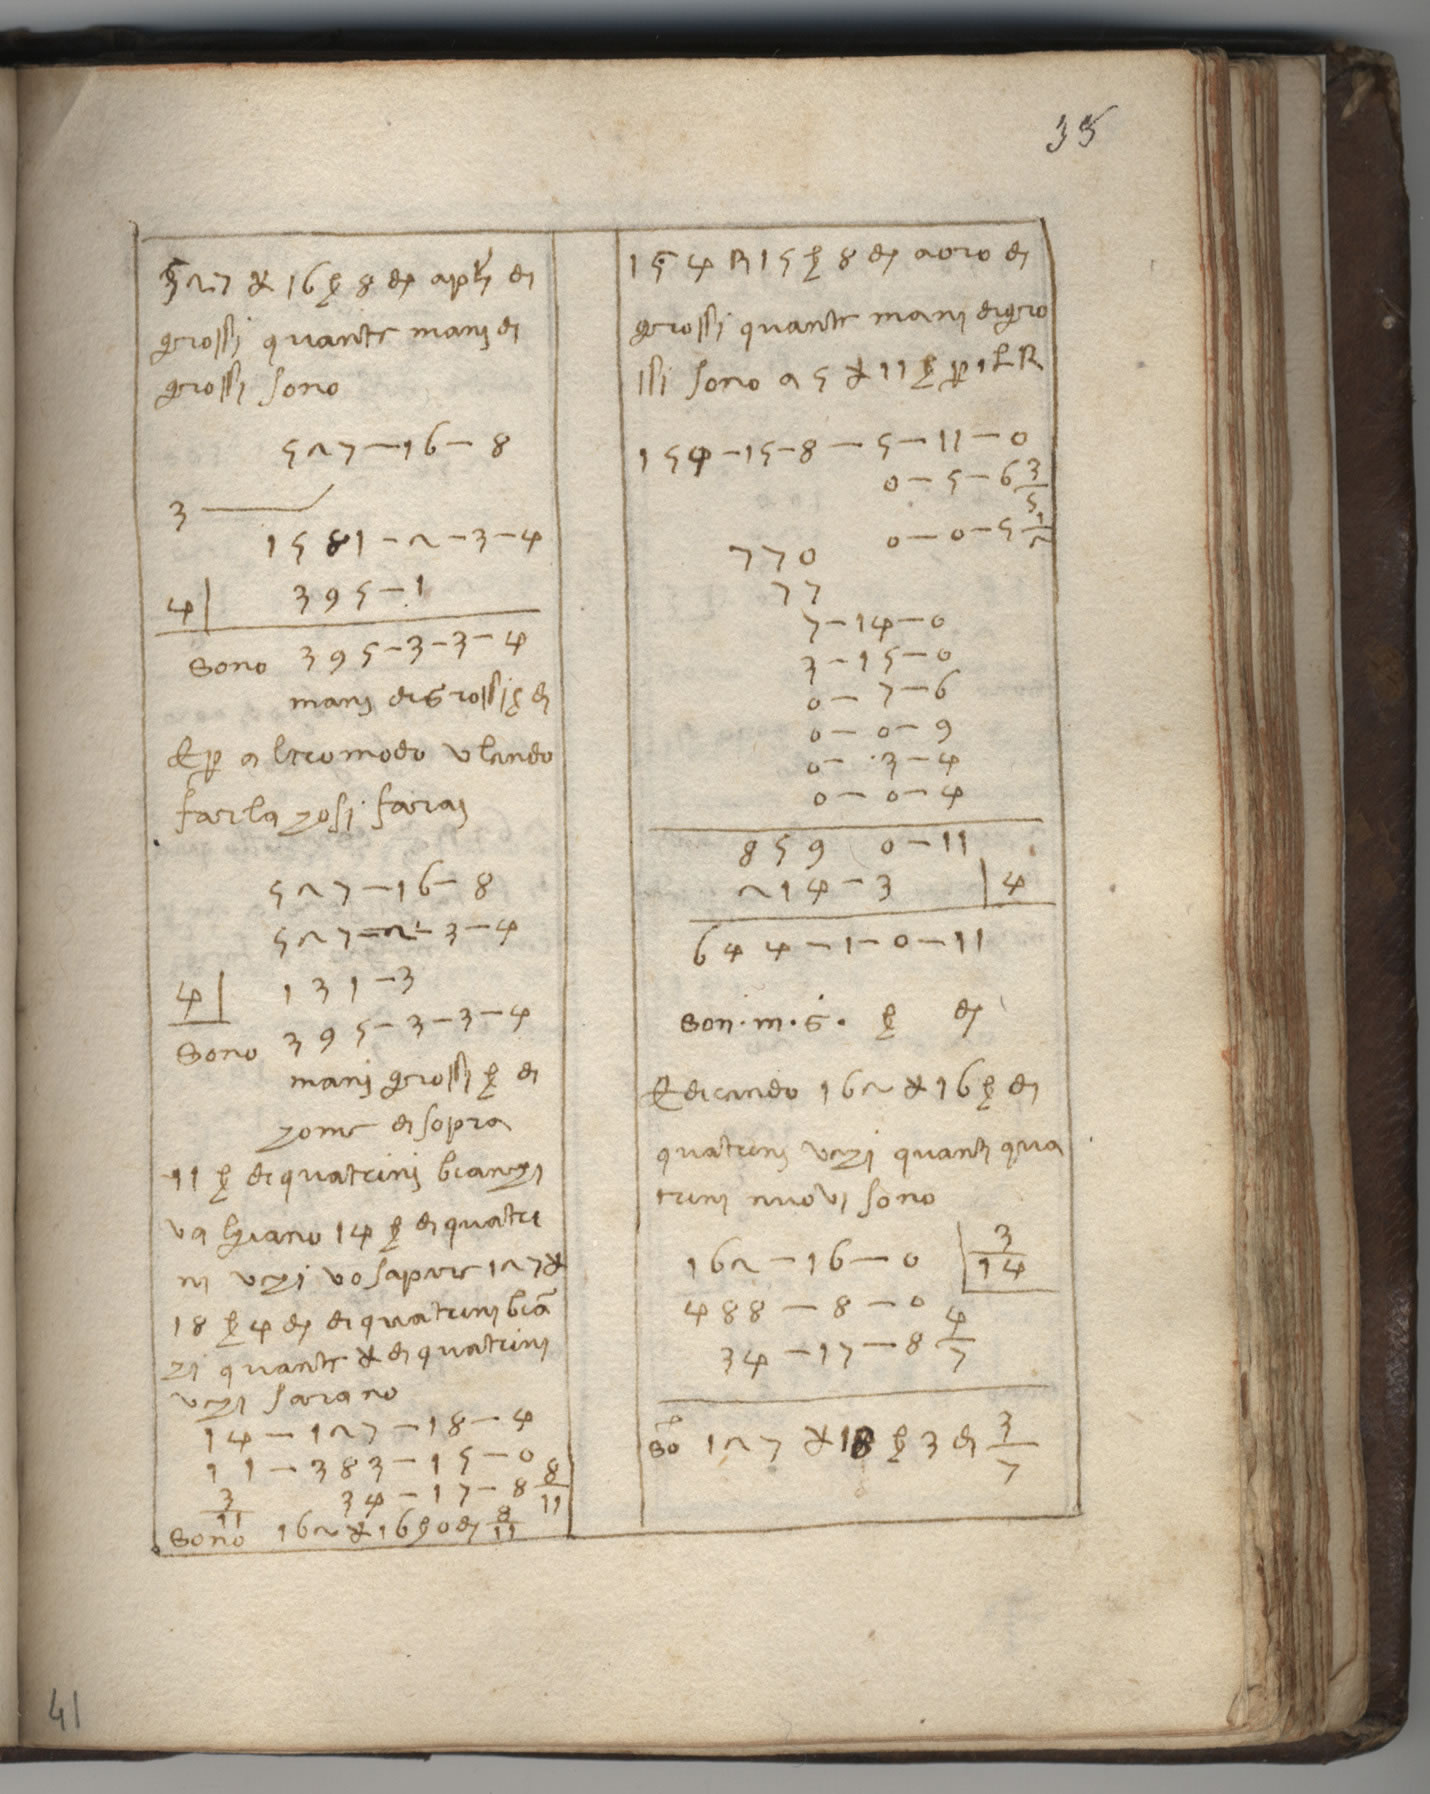 35
527 ₰ 16 ß 8 d apli di
grossi quante manj di
grossi sono
527 — 16 — 8
3
1581 - 2 - 3 - 4
4| 395 - 1
Sono 395 - 3 - 3 - 4
manj di Grossi ß di
& p altro modo volendo
farla zosi faraj
527 — 16 — 8
527 — 2 - 3 - 4
4| 131 - 3
Sono 395 - 3 - 3 - 4
manj grossi ß di
zome di sopra
11 ß di quatrinj bianzi
vagliano 14 ß di quatri
ni vezi vo sapere 127 ₰
18 ß 4 d di quatrini biā
zi quante ₰ di quatrini
vezi sarano
14 — 127 — 18 — 4
11 — 383 — 15 — 0
3/11 34 — 17 — 8 8/11
Sono 162 ₰ 16 ß 0 di 8/11
154 R 15 ß 8 d a oro di
grossi quante manj di gro
ssi sono a 5 ₰ 11 ß p 1 L R
154 - 15 - 8 — 5 — 11 — 0
0 — 5 — 6 3/5
0 — 0 — 5 1/2
770
77
7 — 14 — 0
3 — 15 — 0
0 — 7 — 6
0 — 0 — 9
0 — 3 — 4
0 — 0 — 4
859 0 — 11
214 - 3 |4
644 — 1 — 0 — 11
Son. m. G. ß d
& dicendo 162 ₰ 16 ß di
quatrinj vezi quanti qua
trini nuovi sono
162 — 16 — 0 |3/14
488 — 8 — 0
34 — 17 — 8 4/7
So 127 ₰ 18 ß 3 di 3/7
41